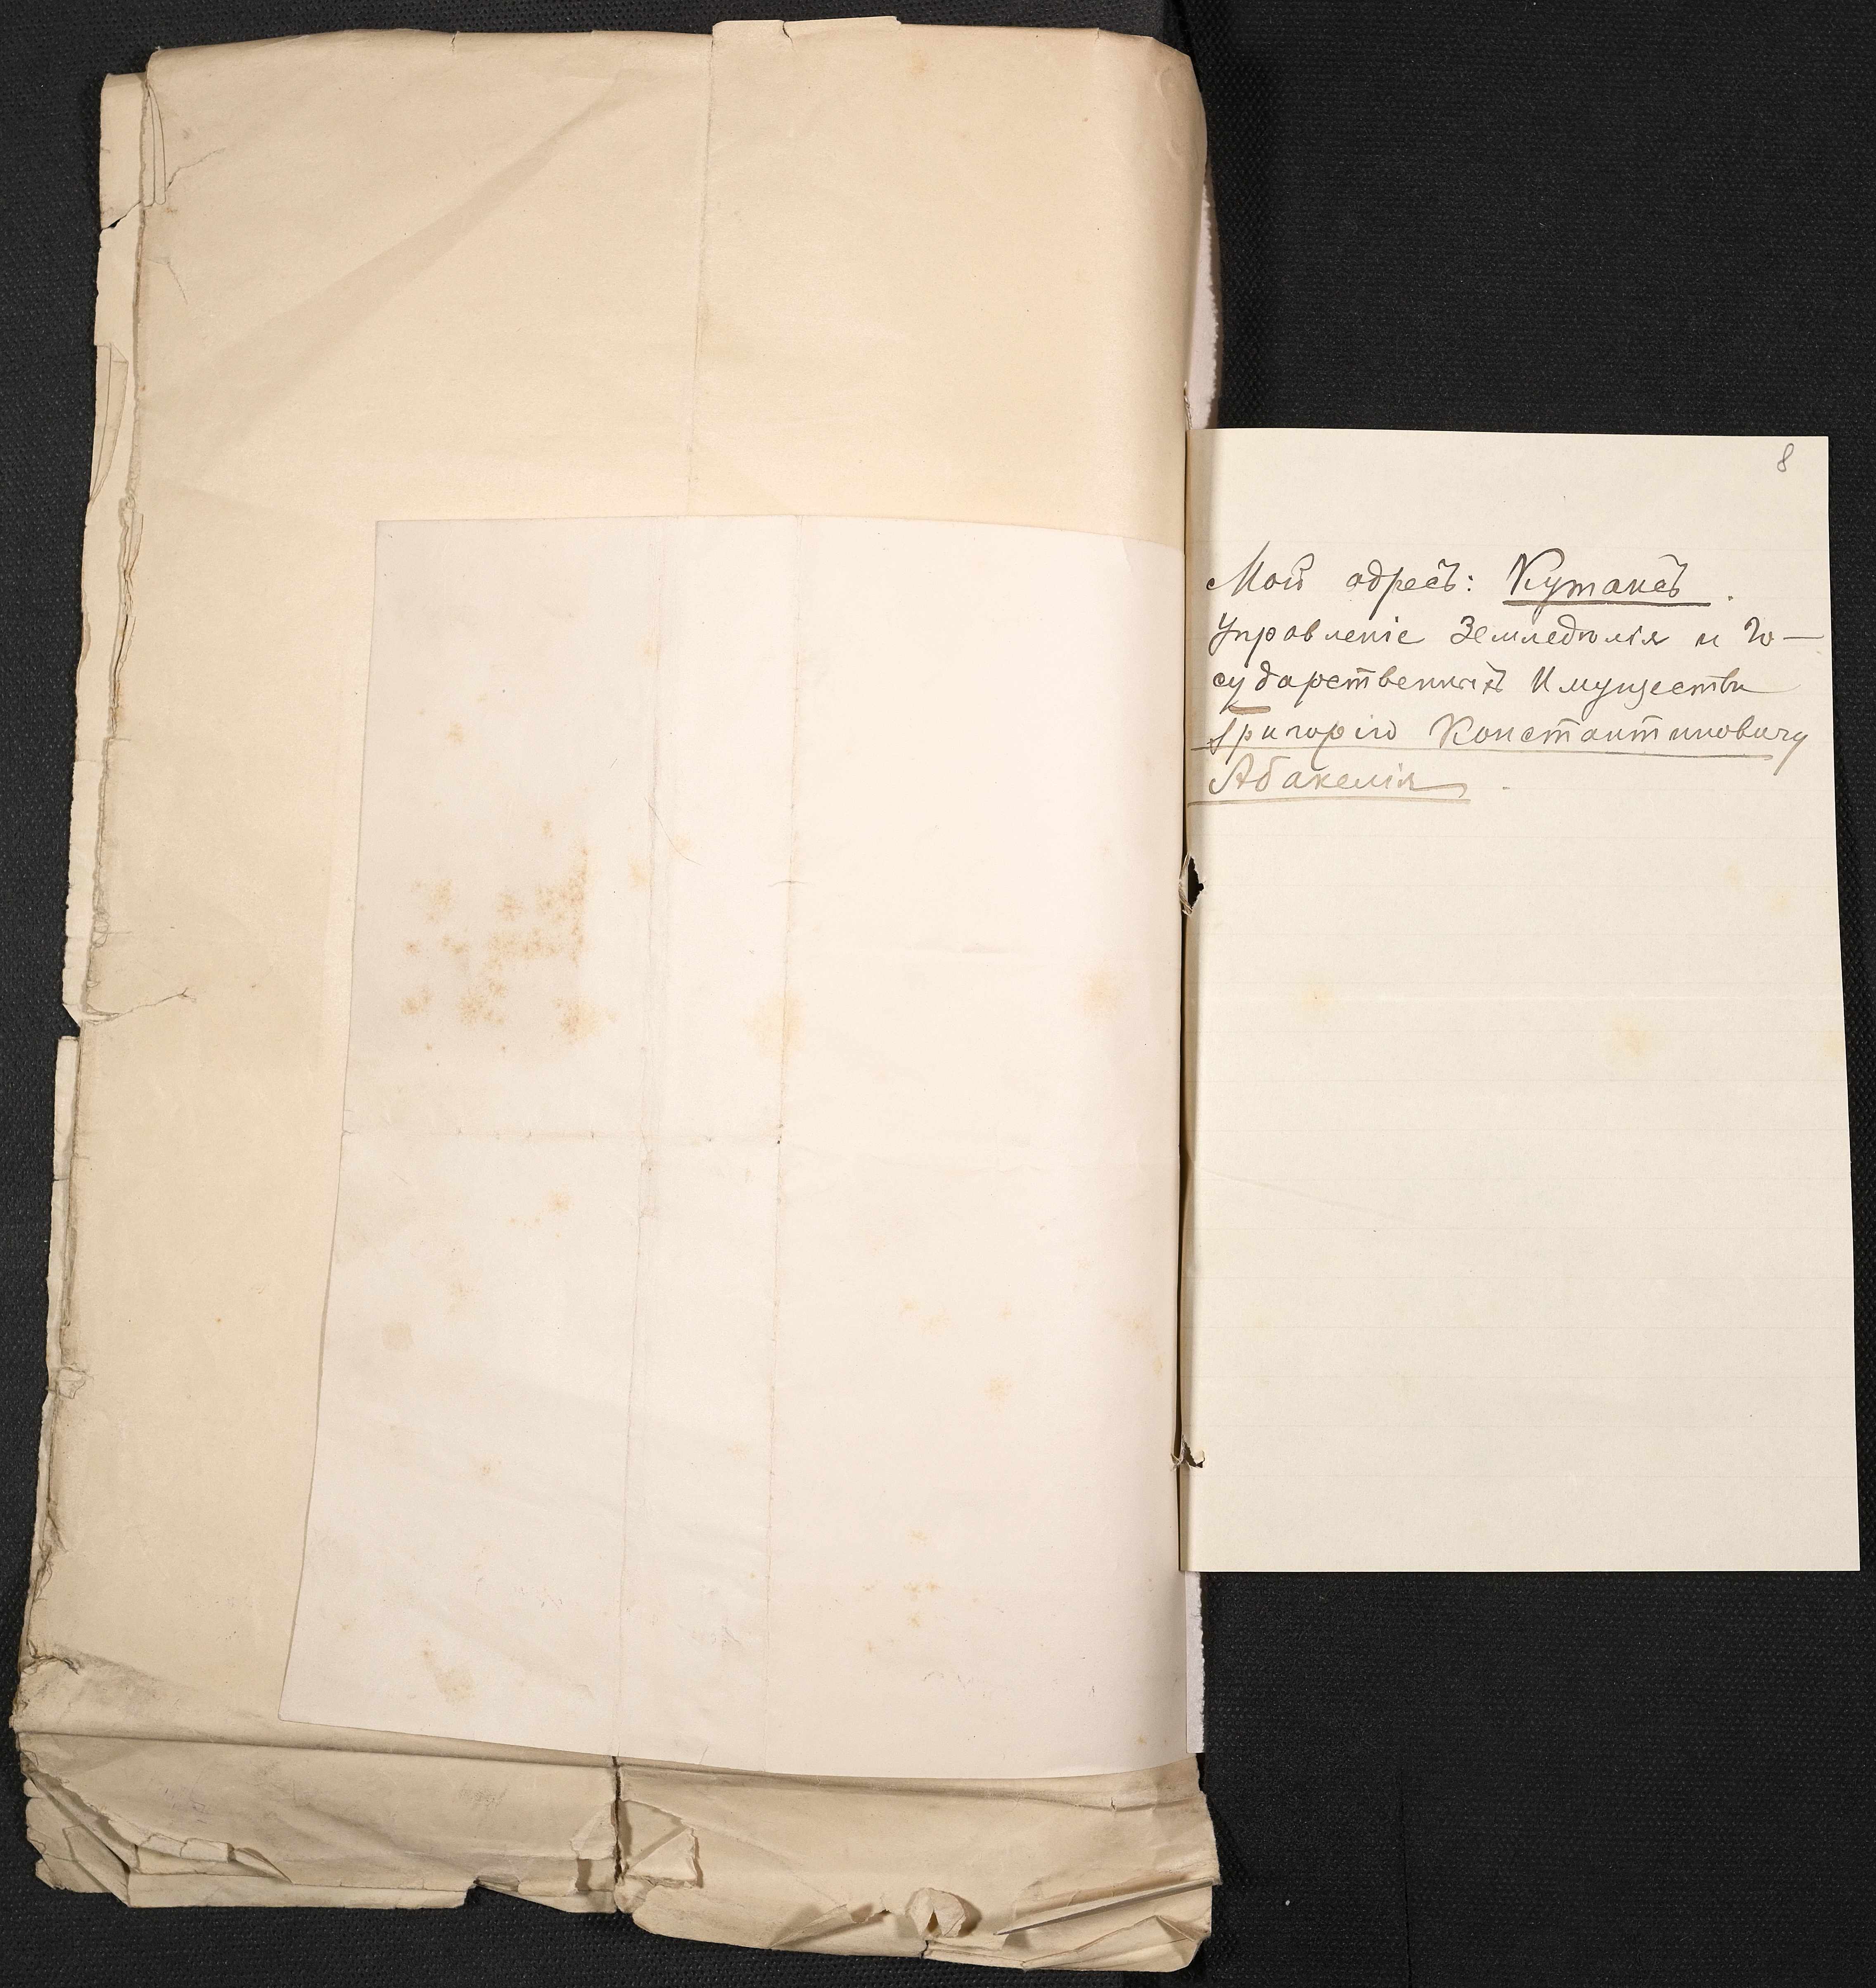 8
Мой адресъ: Кутаисъ.
Управленіе Земледѣлія и Го-
сударственныхъ Имуществъ
Григорію Константиновичу
Абакелія.